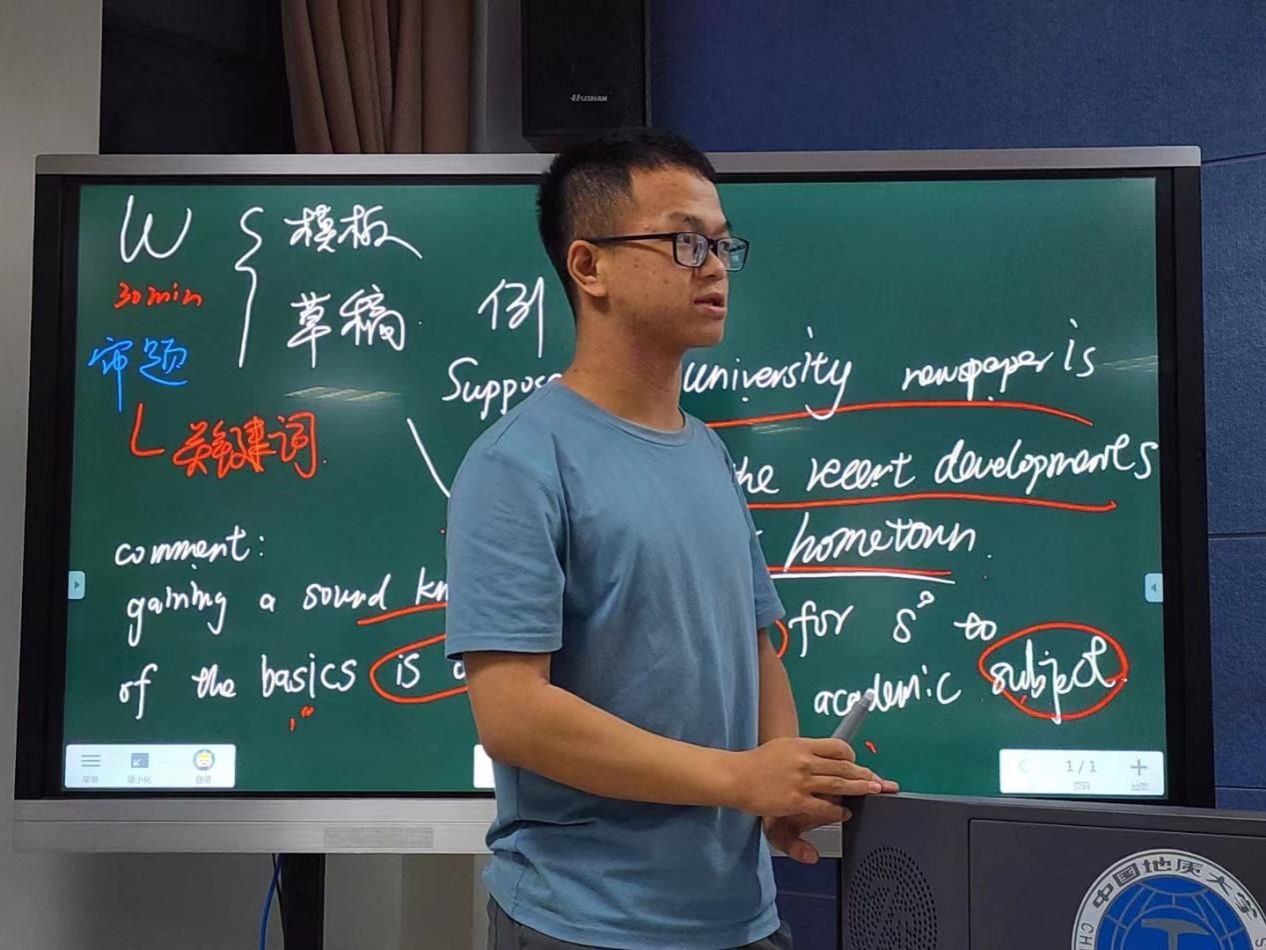 HUSHAN
W { 模板
草稿
30min
审题
关键词
例
Suppose university newspaper is
the recent developments
hometown.
comment:
gaining a sound kn
of the basics is
for s° to
academic subject.
菜单 最小化 登录
1/1
页码 加页
中国地质大学